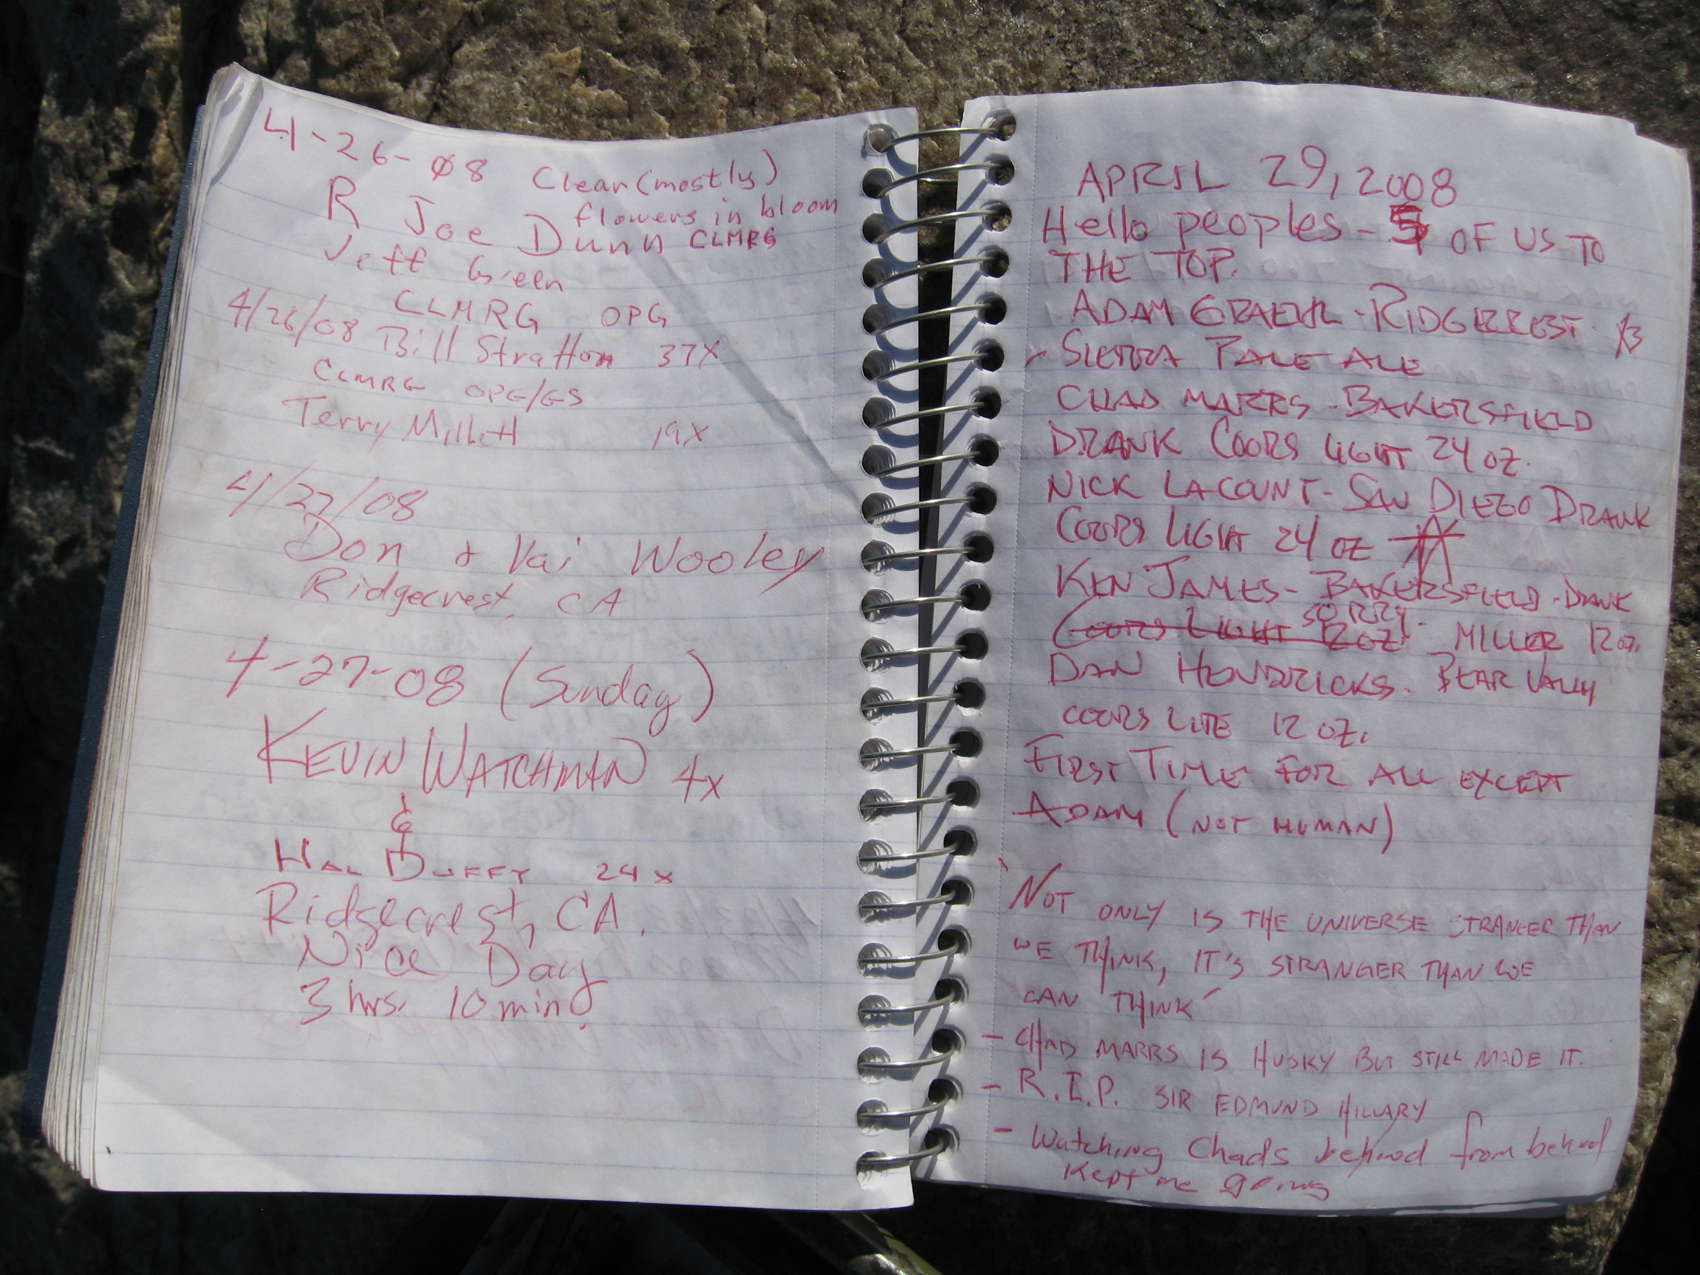 4-26-08 Clear (mostly)
flowers in bloom
R Joe Dunn CLMRG
Jeff Green
CLMRG OPG
4/26/08 Bill Stratton 37X
CLMRG OPG/GS
Terry Millett 19X
4/27/08
Don & Val Wooley
Ridgecrest, CA
4-27-08 (Sunday)
KEVIN WATCHMAN 4x
&
HAL DUFFY 24x
Ridgecrest, CA.
Nice Day
3 hrs. 10 min.
APRIL 29, 2008
Hello peoples - 5 OF US TO
THE TOP.
ADAM - RIDGECREST
- SIERRA PALE ALE
CHAD MARRS - BAKERSFIELD
DRANK COORS LIGHT 24 OZ.
NICK LACOUNT - SAN DIEGO DRANK
COORS LIGHT 24 OZ
KEN JAMES - BAKERSFIELD - DANK
SORRY -
COORS LIGHT 12 OZ. MILLER 12 OZ.
DAN HENDRICKS. BEAR VALLEY
COORS LITE 12 OZ.
FIRST TIME FOR ALL EXCEPT
ADAM (NOT HUMAN)
"NOT ONLY IS THE UNIVERSE STRANGER THAN
WE THINK, IT'S STRANGER THAN WE
CAN THINK"
- CHAD MARRS IS HUSKY BUT STILL MADE IT.
- R.I.P. SIR EDMUND HILLARY
- Watching Chads behind from behind
Kept me going